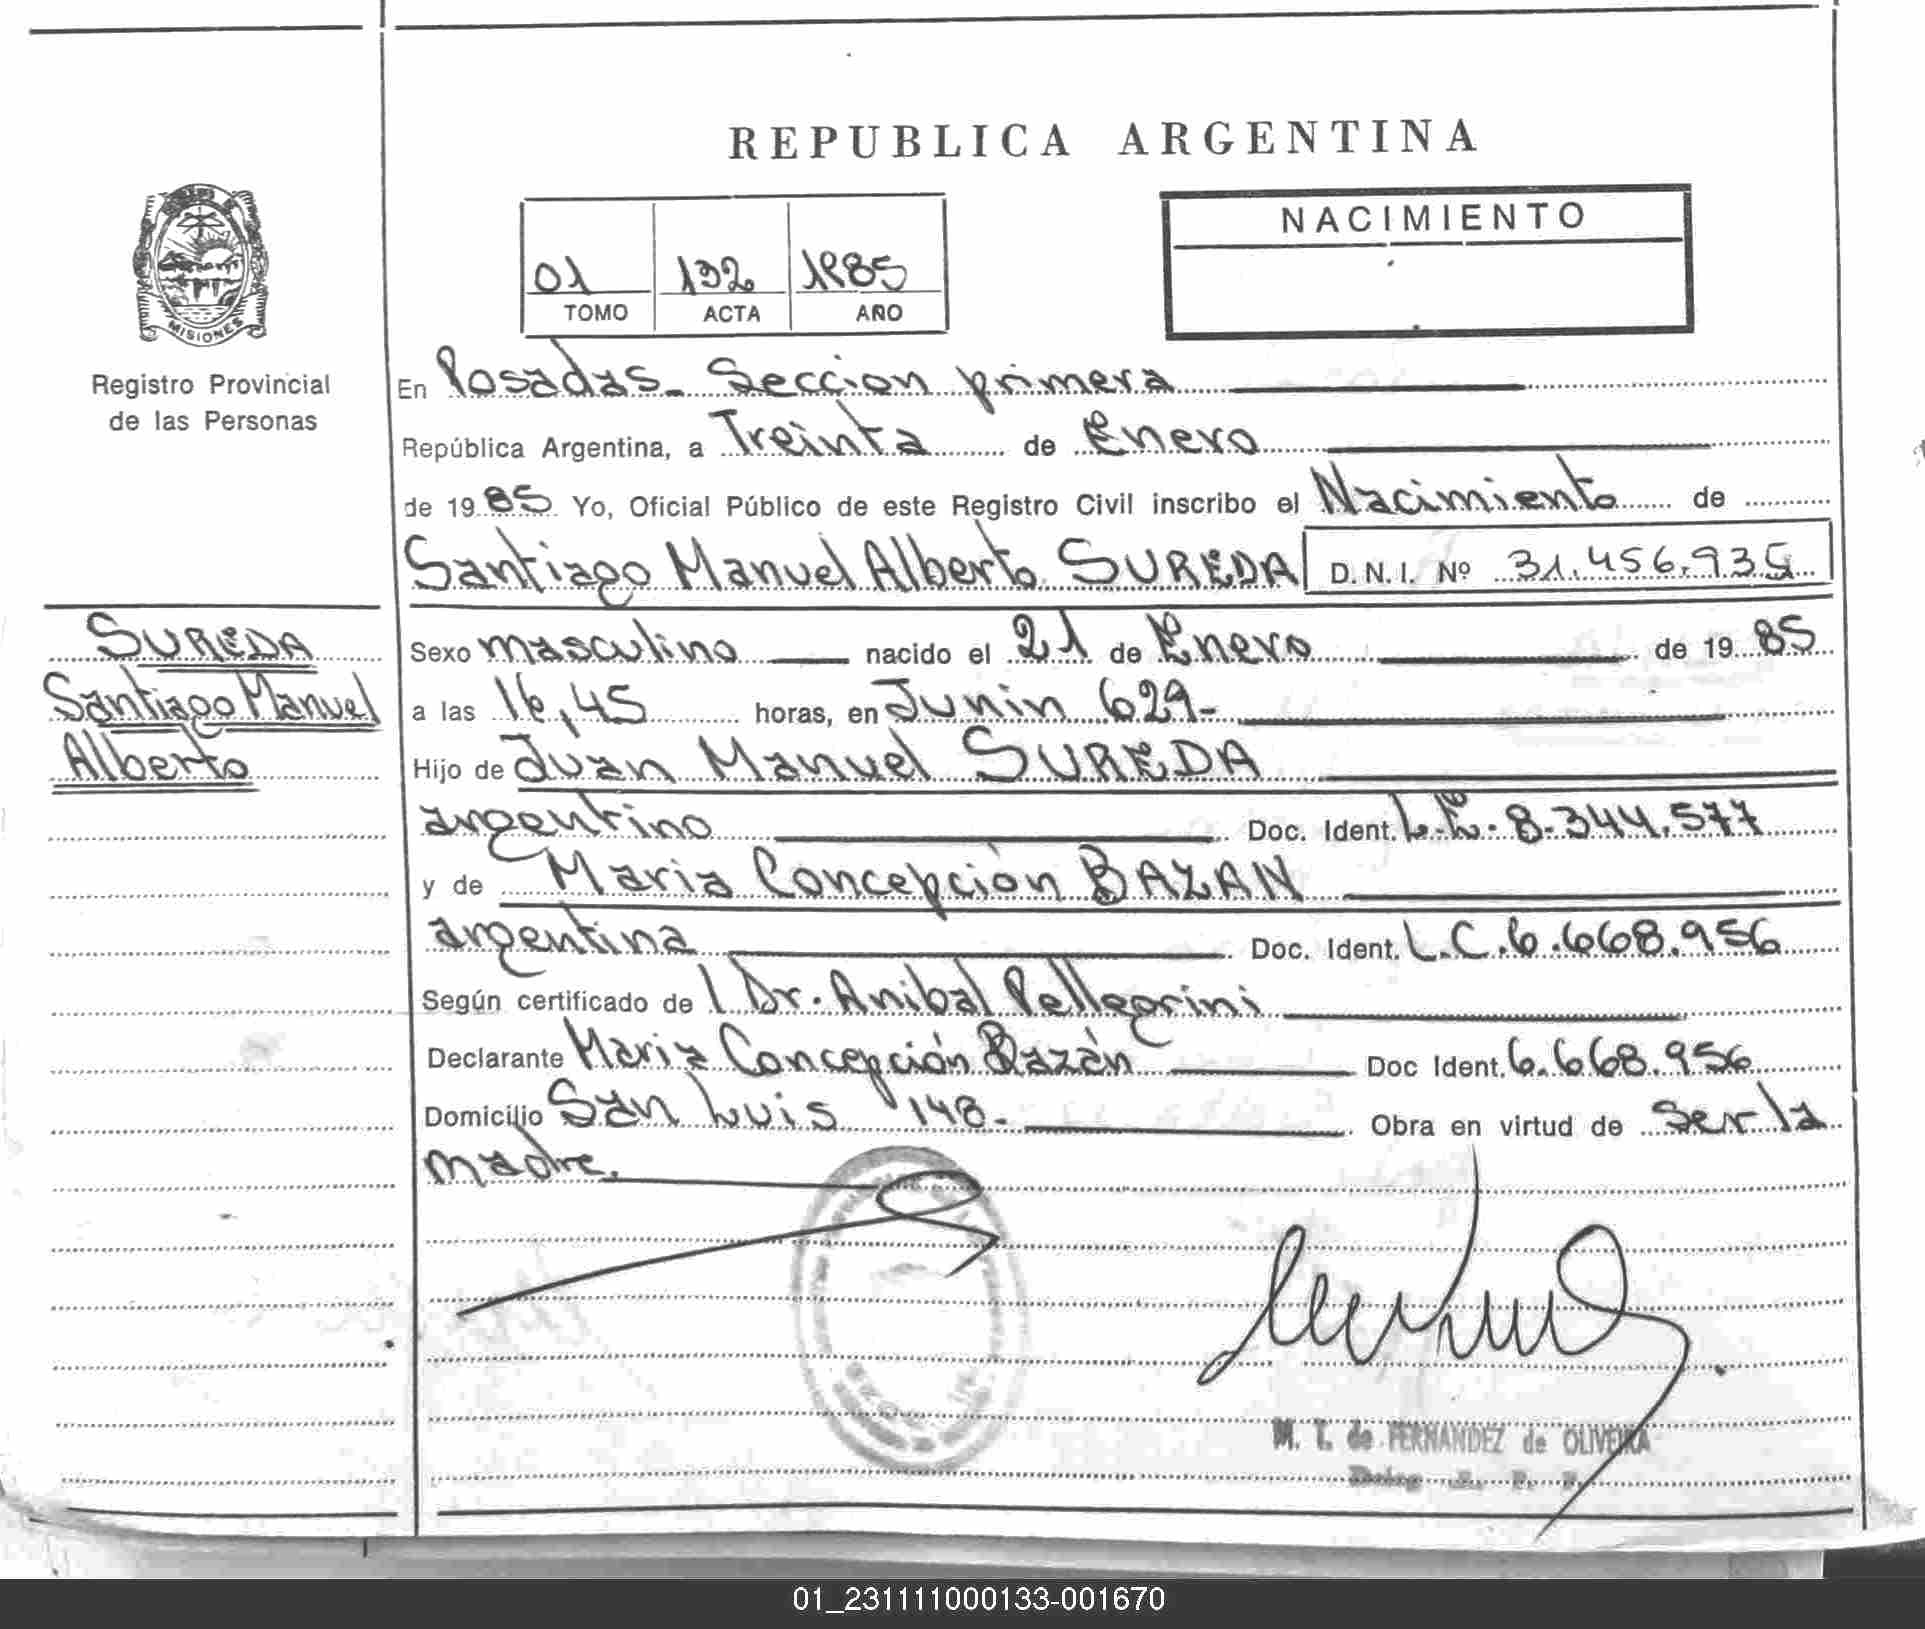 REPUBLICA ARGENTINA
NACIMIENTO
01 132 1985
TOMO ACTA AÑO
MISIONES
Registro Provincial
de las Personas
En Posadas - Seccion primera
República Argentina, a Treinta de Enero
de 1985 Yo, Oficial Público de este Registro Civil inscribo el Nacimiento de
Santiago Manuel Alberto SUREDA D.N.I. Nº 31.456.935
SUREDA
Santiago Manuel
Alberto
Sexo masculino nacido el 21 de Enero de 1985
a las 16,45 horas, en Junin 629-
Hijo de Juan Manuel SUREDA
argentino Doc. Ident. L.E. 8.344.577
y de Maria Concepción BAZAN
argentina Doc. Ident. L.C. 6.668.956
Según certificado de l Dr. Anibal Pellegrini
Declarante Maria Concepción Bazán Doc Ident. 6.668.956
Domicilio San Luis 148- Obra en virtud de ser la
madre.
M. T. de FERNANDEZ de OLIVEIRA
01_231111000133-001670